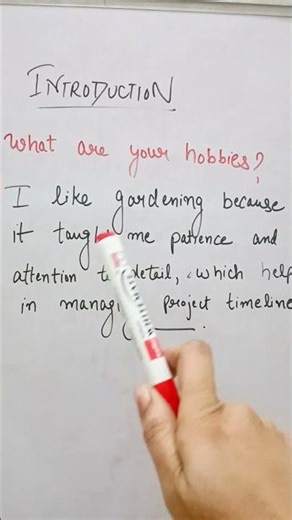 INTRODUCTION
What are your hobbies?
I like gardening because
it taught me patience and
attention to detail, which help
in managing project timeline